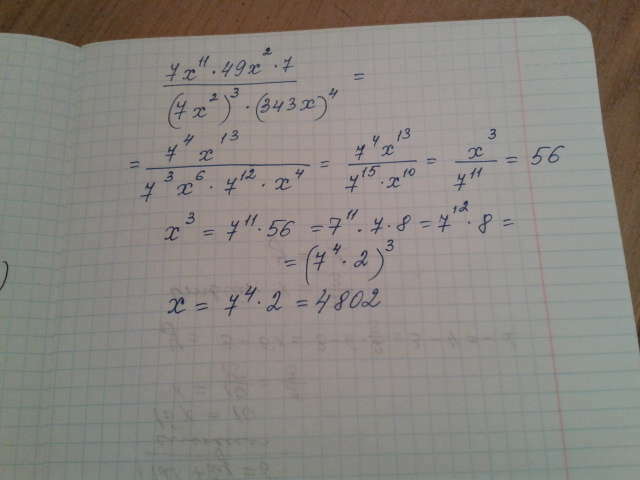 7x¹¹ · 49x² · 7 / (7x²)³ · (343x)⁴ =
= 7⁴x¹³ / 7³x⁶ · 7¹² · x⁴ = 7⁴x¹³ / 7¹⁵ · x¹⁰ = x³ / 7¹¹ = 56
x³ = 7¹¹ · 56 = 7¹¹ · 7 · 8 = 7¹² · 8 =
= (7⁴ · 2)³
x = 7⁴ · 2 = 4802